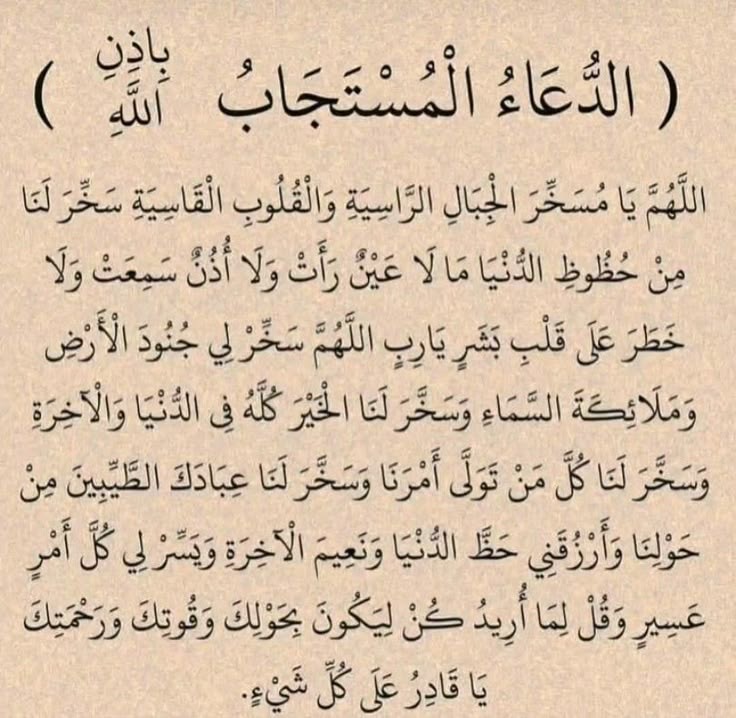 ( الدُّعَاءُ الْمُسْتَجَابُ بِاذِنِ اللَّهِ )
اللَّهُمَّ يَا مُسَخِّرَ الْجِبَالِ الرَّاسِيَةِ وَالْقُلُوبِ الْقَاسِيَةِ سَخِّرَ لَنَا
مِنْ حُظُوظِ الدُّنْيَا مَا لَا عَيْنٌ رَأَتْ وَلَا أُذُنٌ سَمِعَتْ وَلَا
خَطَرَ عَلَى قَلْبِ بَشَرٍ يَارِبٍ اللَّهُمَّ سَخِّرْ لِي جُنُودَ الْأَرْضِ
وَمَلَائِكَةَ السَّمَاءِ وَسَخَّرَ لَنَا الْخَيْرَ كُلَّهُ فِى الدُّنْيَا وَالْآخِرَةِ
وَسَخَّرَ لَنَا كُلَّ مَنْ تَوَلَّى أَمْرَنَا وَسَخَّرَ لَنَا عِبَادَكَ الطَّيِّبِينَ مِنْ
حَوْلِنَا وَأَرْزُقَنِي حَظَّ الدُّنْيَا وَنَعِيمَ الْآخِرَةِ وَيَسِّرْ لِي كُلَّ أَمْرٍ
عَسِيرٍ وَقُلْ لِمَا أُرِيدُ كُنْ لِيَكُونَ بِحَوْلِكَ وَقُوتِكَ وَرَحْمَتِكَ
يَا قَادِرُ عَلَى كُلِّ شَيْءٍ.